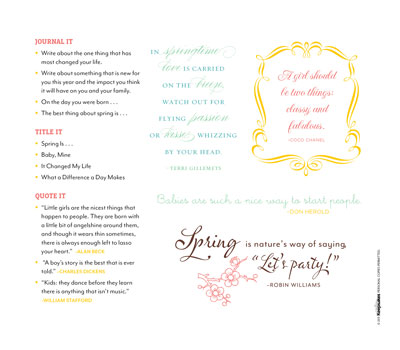 JOURNAL IT
Write about the one thing that has
most changed your life.
Write about something that is new for
you this year and the impact you think
it will have on you and your family.
On the day you were born . . .
The best thing about spring is . . .
TITLE IT
Spring Is . . .
Baby, Mine
It Changed My Life
What a Difference a Day Makes
QUOTE IT
"Little girls are the nicest things that
happen to people. They are born with
a little bit of angelshine around them,
and though it wears thin sometimes,
there is always enough left to lasso
your heart." -ALAN BECK
"A boy's story is the best that is ever
told." -CHARLES DICKENS
"Kids: they dance before they learn
there is anything that isn't music."
-WILLIAM STAFFORD
IN springtime
love IS CARRIED
ON THE breeze.
WATCH OUT FOR
FLYING passion
OR kisses WHIZZING
BY YOUR HEAD.
- TERRI GUILLEMETS
A girl should
be two things:
classy and
fabulous.
-COCO CHANEL
Babies are such a nice way to start people.
-DON HEROLD
Spring is nature's way of saying,
"Let's party!"
-ROBIN WILLIAMS